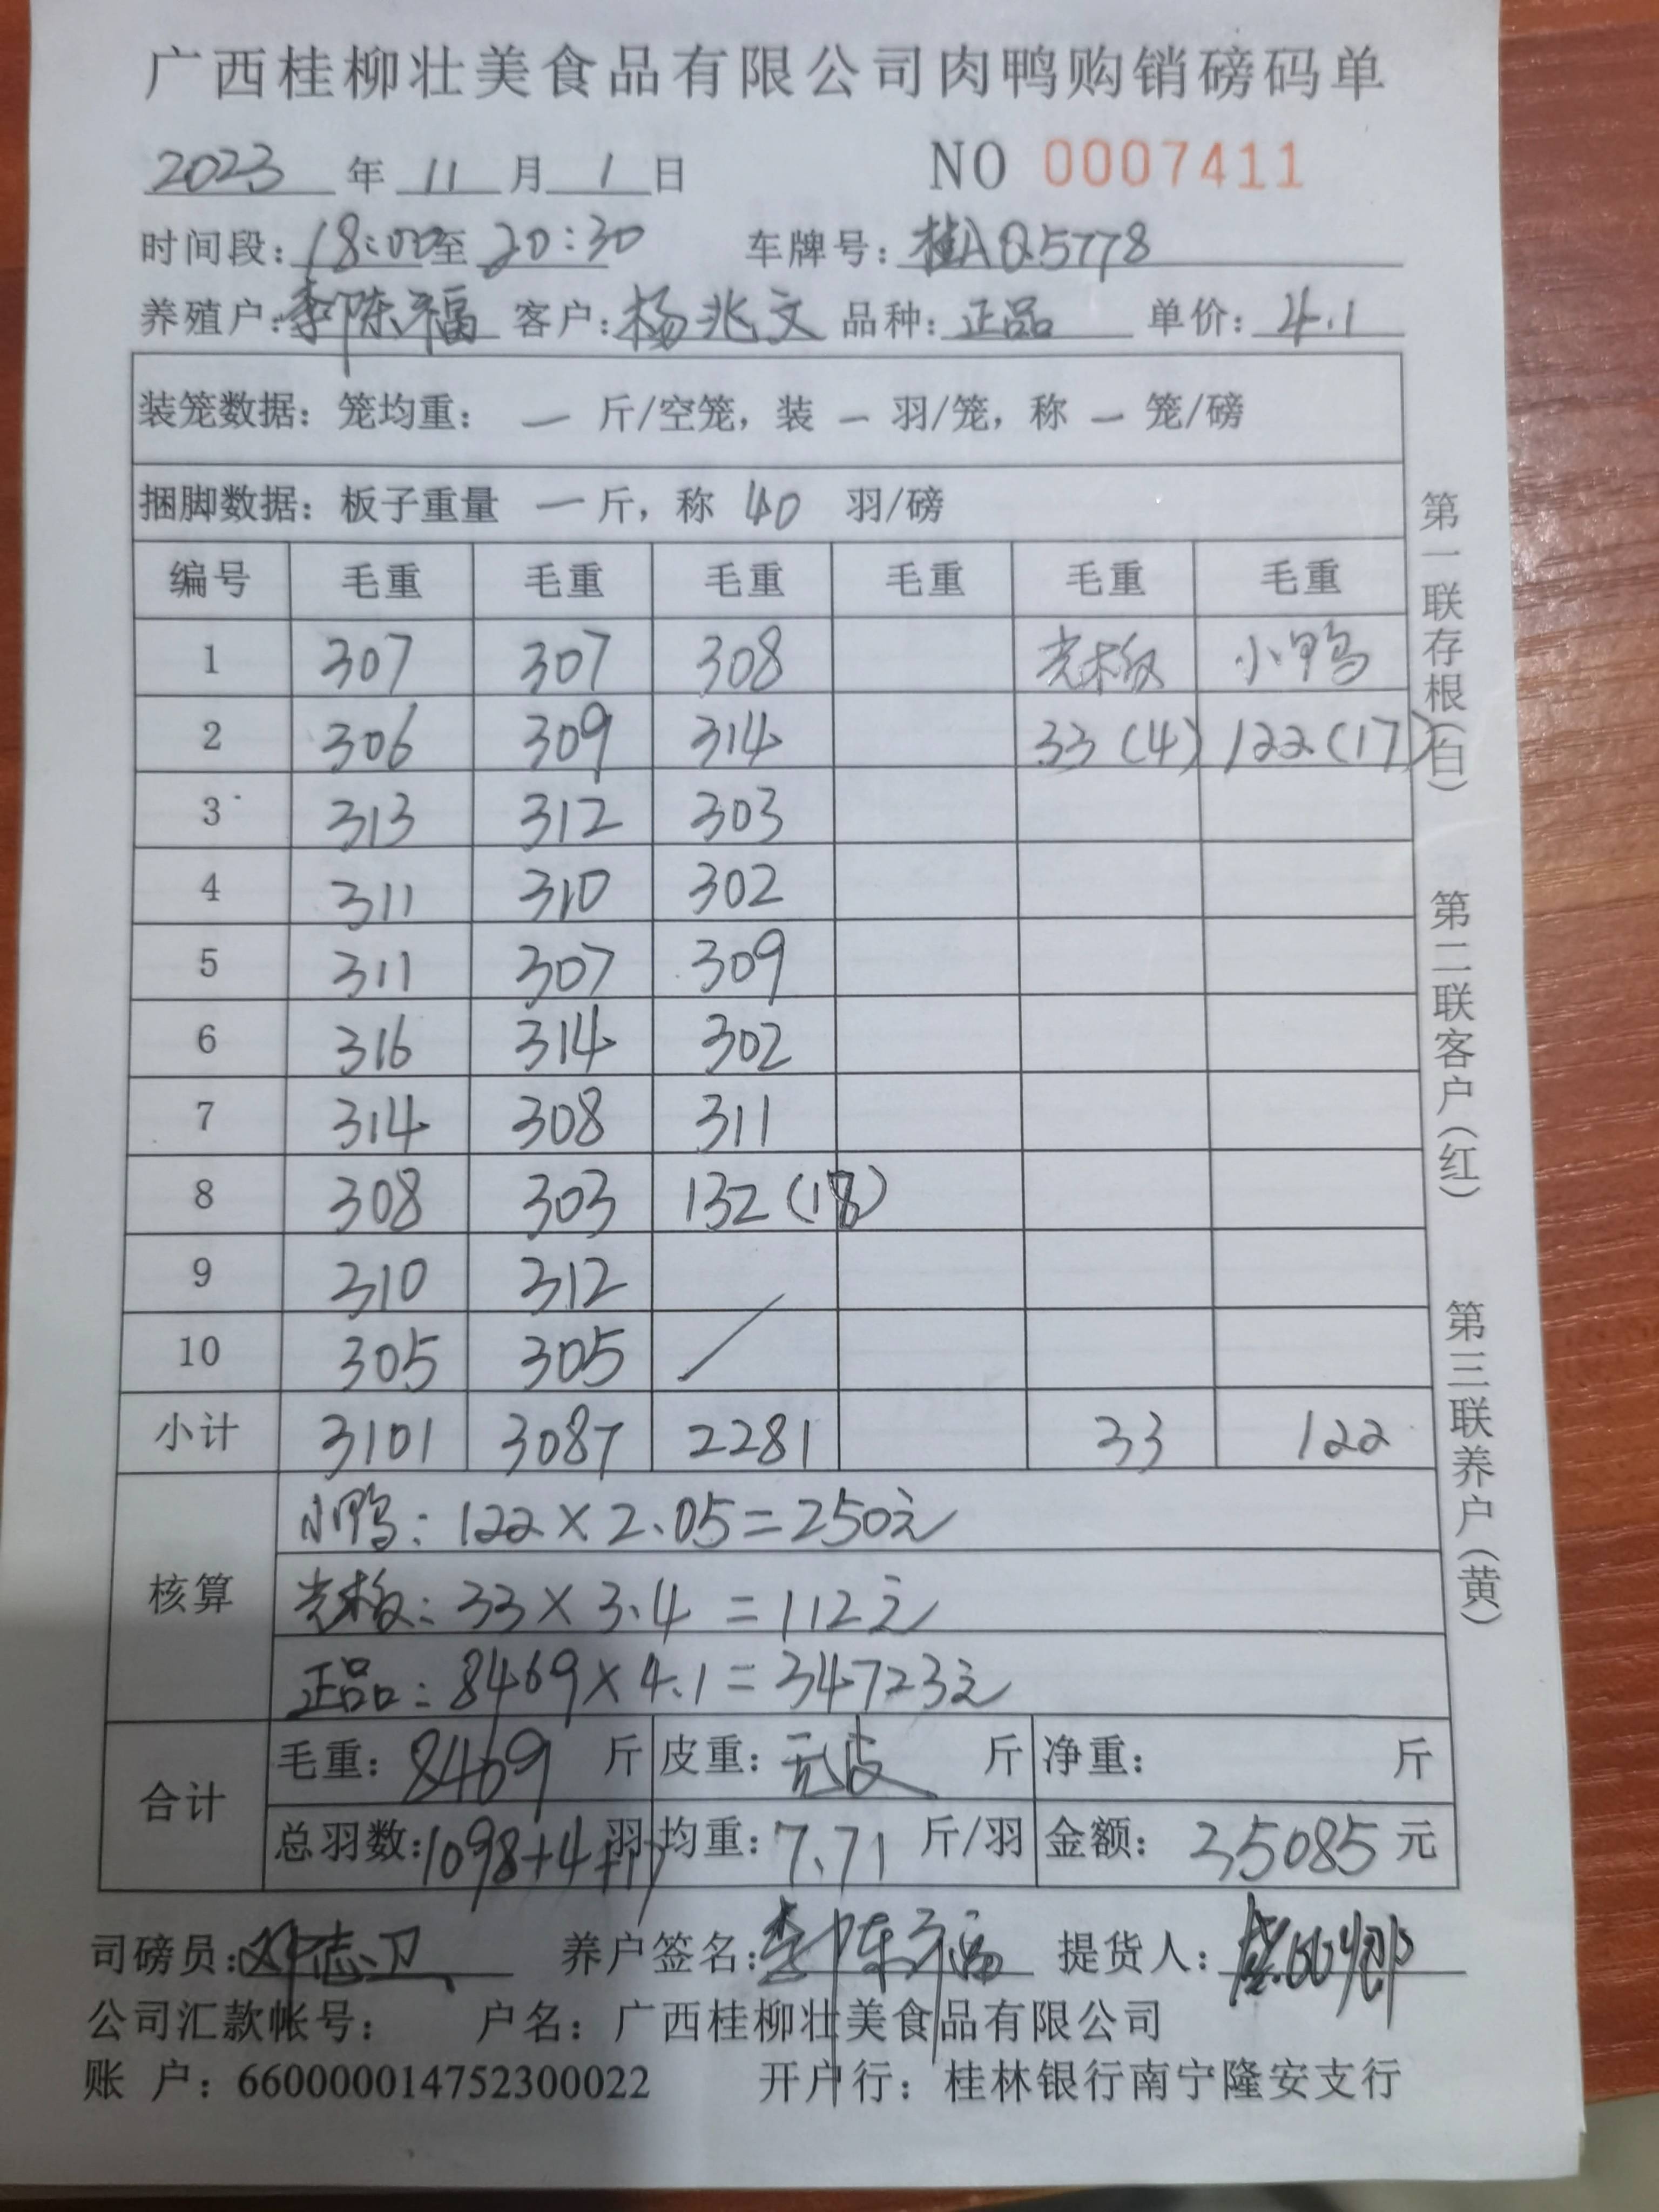 广西桂柳壮美食品有限公司肉鸭购销磅码单
2023年11月1日 NO 0007411
时间段：18:00至20:30 车牌号：桂AQ5778
养殖户：李陈福 客户：杨兆文 品种：正品 单价：4.1
装笼数据：笼均重：一斤/空笼，装一羽/笼，称一笼/磅
捆脚数据：板子重量一斤，称40羽/磅
编号 毛重 毛重 毛重 毛重 毛重 毛重
1 307 307 308 光板 小鸭
2 306 309 314 33(4) 122(17)
3 313 312 303
4 311 310 302
5 311 307 309
6 316 314 302
7 314 308 311
8 308 303 132(18)
9 310 312
10 305 305
小计 3101 3087 2281 33 122
核算
小鸭：122×2.05=250元
光板：33×3.4=112元
正品：8469×4.1=34723元
合计
毛重：8469斤 皮重：无皮斤 净重：斤
总羽数：1098+4+17羽 均重：7.71斤/羽 金额：35085元
司磅员：志卫 养户签名：李陈福 提货人：
公司汇款帐号： 户名：广西桂柳壮美食品有限公司
账户：660000014752300022 开户行：桂林银行南宁隆安支行
第一联存根（白）
第二联客户（红）
第三联养户（黄）